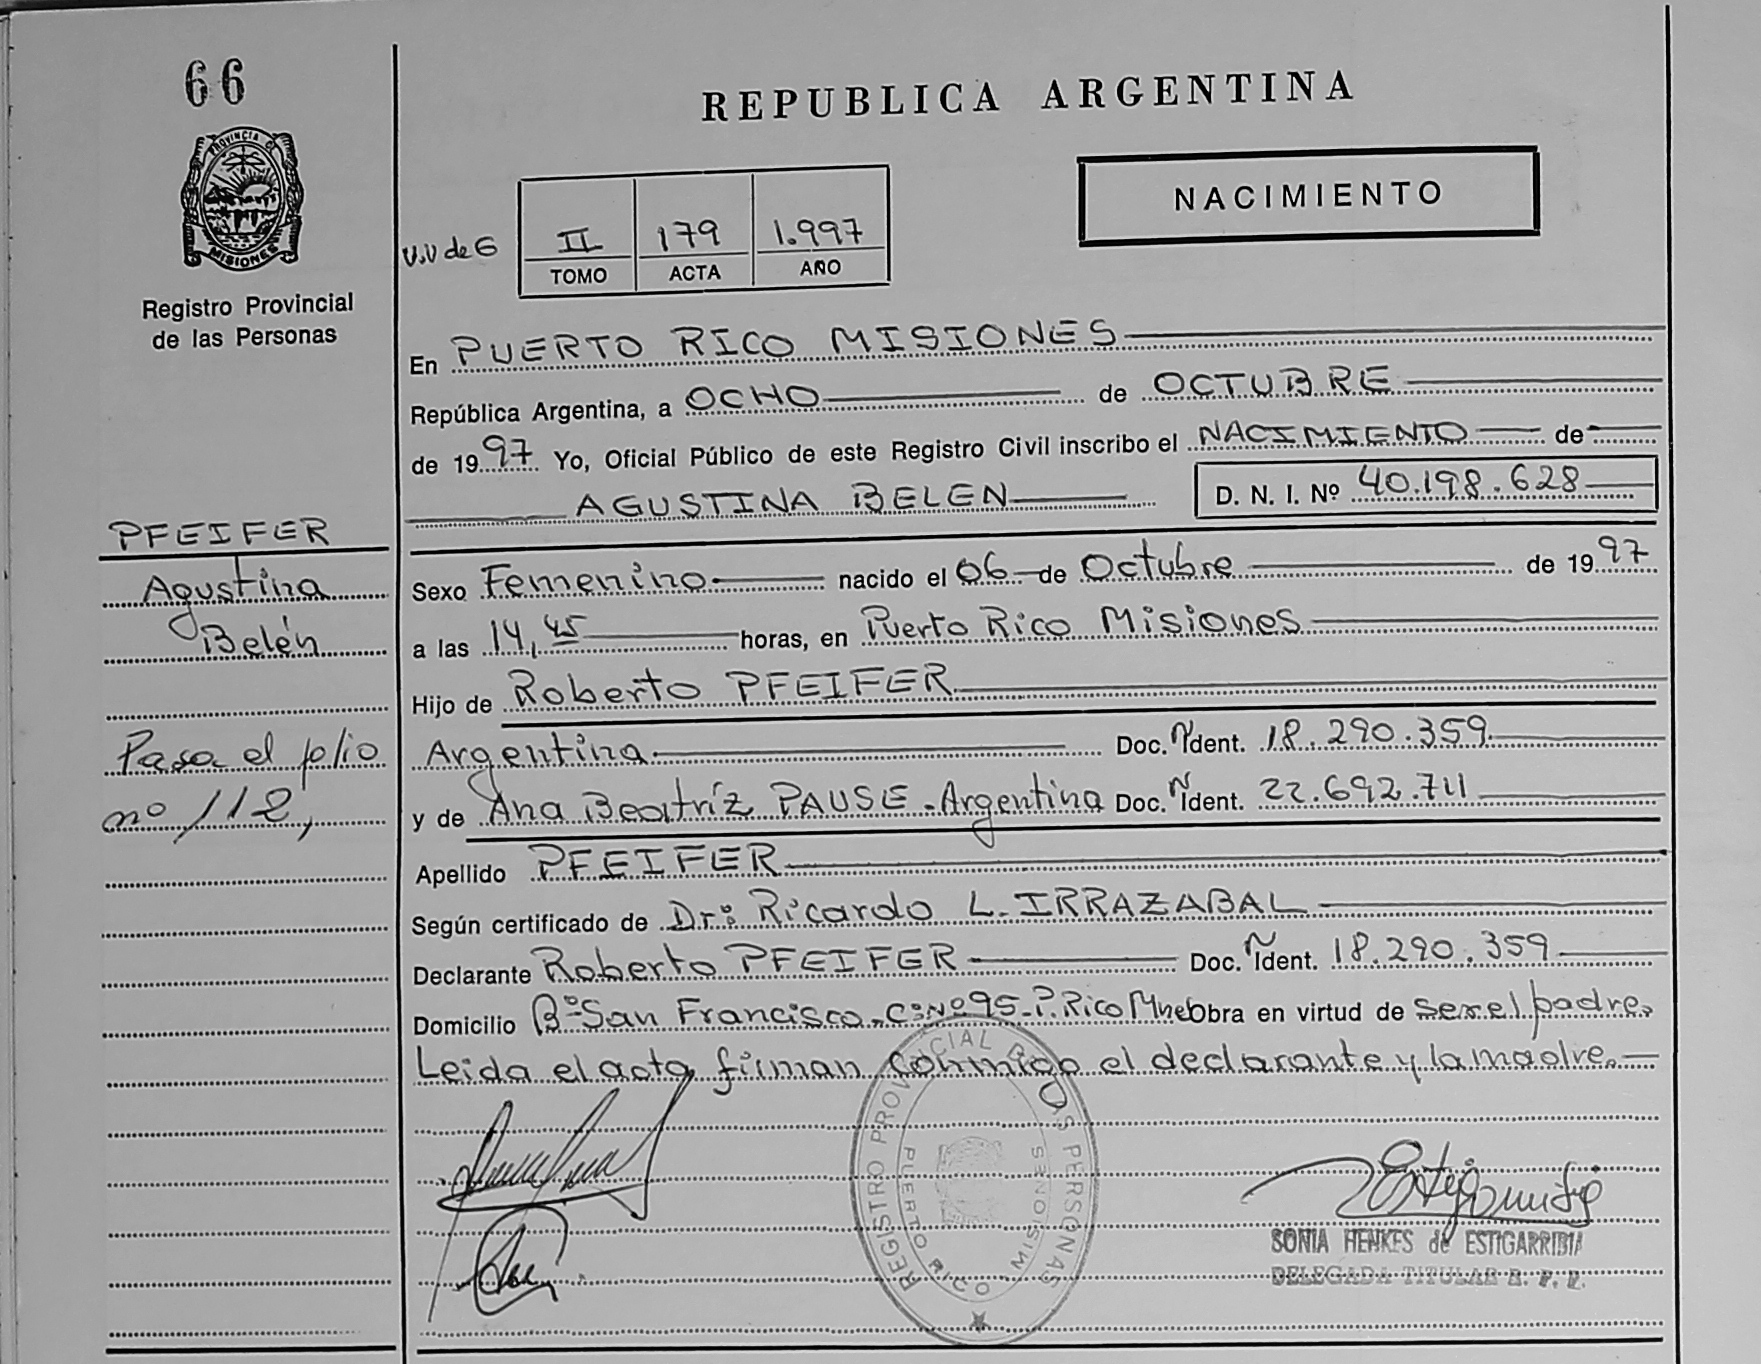 66
PROVINCIA DE
MISIONES
Registro Provincial
de las Personas
REPUBLICA ARGENTINA
NACIMIENTO
U.V de G
II 179 1.997
TOMO ACTA AÑO
En PUERTO RICO MISIONES
República Argentina, a OCHO de OCTUBRE
de 1997 Yo, Oficial Público de este Registro Civil inscribo el NACIMIENTO de
AGUSTINA BELEN D. N. I. Nº 40.198.628
PFEIFER
Agustina
Belén
Pasa el folio
nº 112,
Sexo Femenino nacido el 06 de Octubre de 1997
a las 14,45 horas, en Puerto Rico Misiones
Hijo de Roberto PFEIFER
Argentina Doc. Ñ Ident. 18.290.359
y de Ana Beatríz PAUSE - Argentina Doc. Ñ Ident. 22.692.711
Apellido PFEIFER
Según certificado de Dr: Ricardo L. IRRAZABAL
Declarante Roberto PFEIFER Doc. Ñ Ident. 18.290.359
Domicilio Bº San Francisco - C: Nº 95 - P. Rico Mnes Obra en virtud de ser el padre.
Leida el acta firman conmigo el declarante y la madre.
REGISTRO PROVINCIAL DE LAS PERSONAS
PUERTO RICO MISIONES
SONIA HENKES de ESTIGARRIBIA
DELEGADA TITULAR R. P. P.